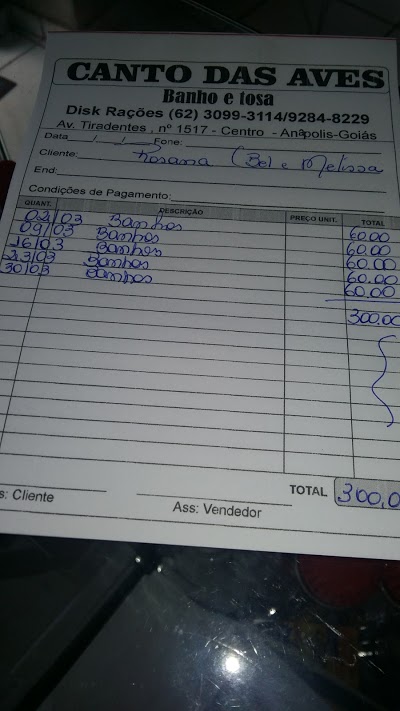 CANTO DAS AVES
Banho e tosa
Disk Rações (62) 3099-3114/9284-8229
Av. Tiradentes , nº 1517 - Centro - Anápolis-Goiás
Data / / Fone:
Cliente: Rosana (Bel e Melissa
End:
Condições de Pagamento:
QUANT. DESCRIÇÃO PREÇO UNIT. TOTAL
02/03 Banhos 60.00
09/03 Banhos 60.00
16/03 Banhos 60.00
23/03 Banhos 60.00
30/03 Banhos 60.00
300.00
TOTAL 300,0
s: Cliente
Ass: Vendedor